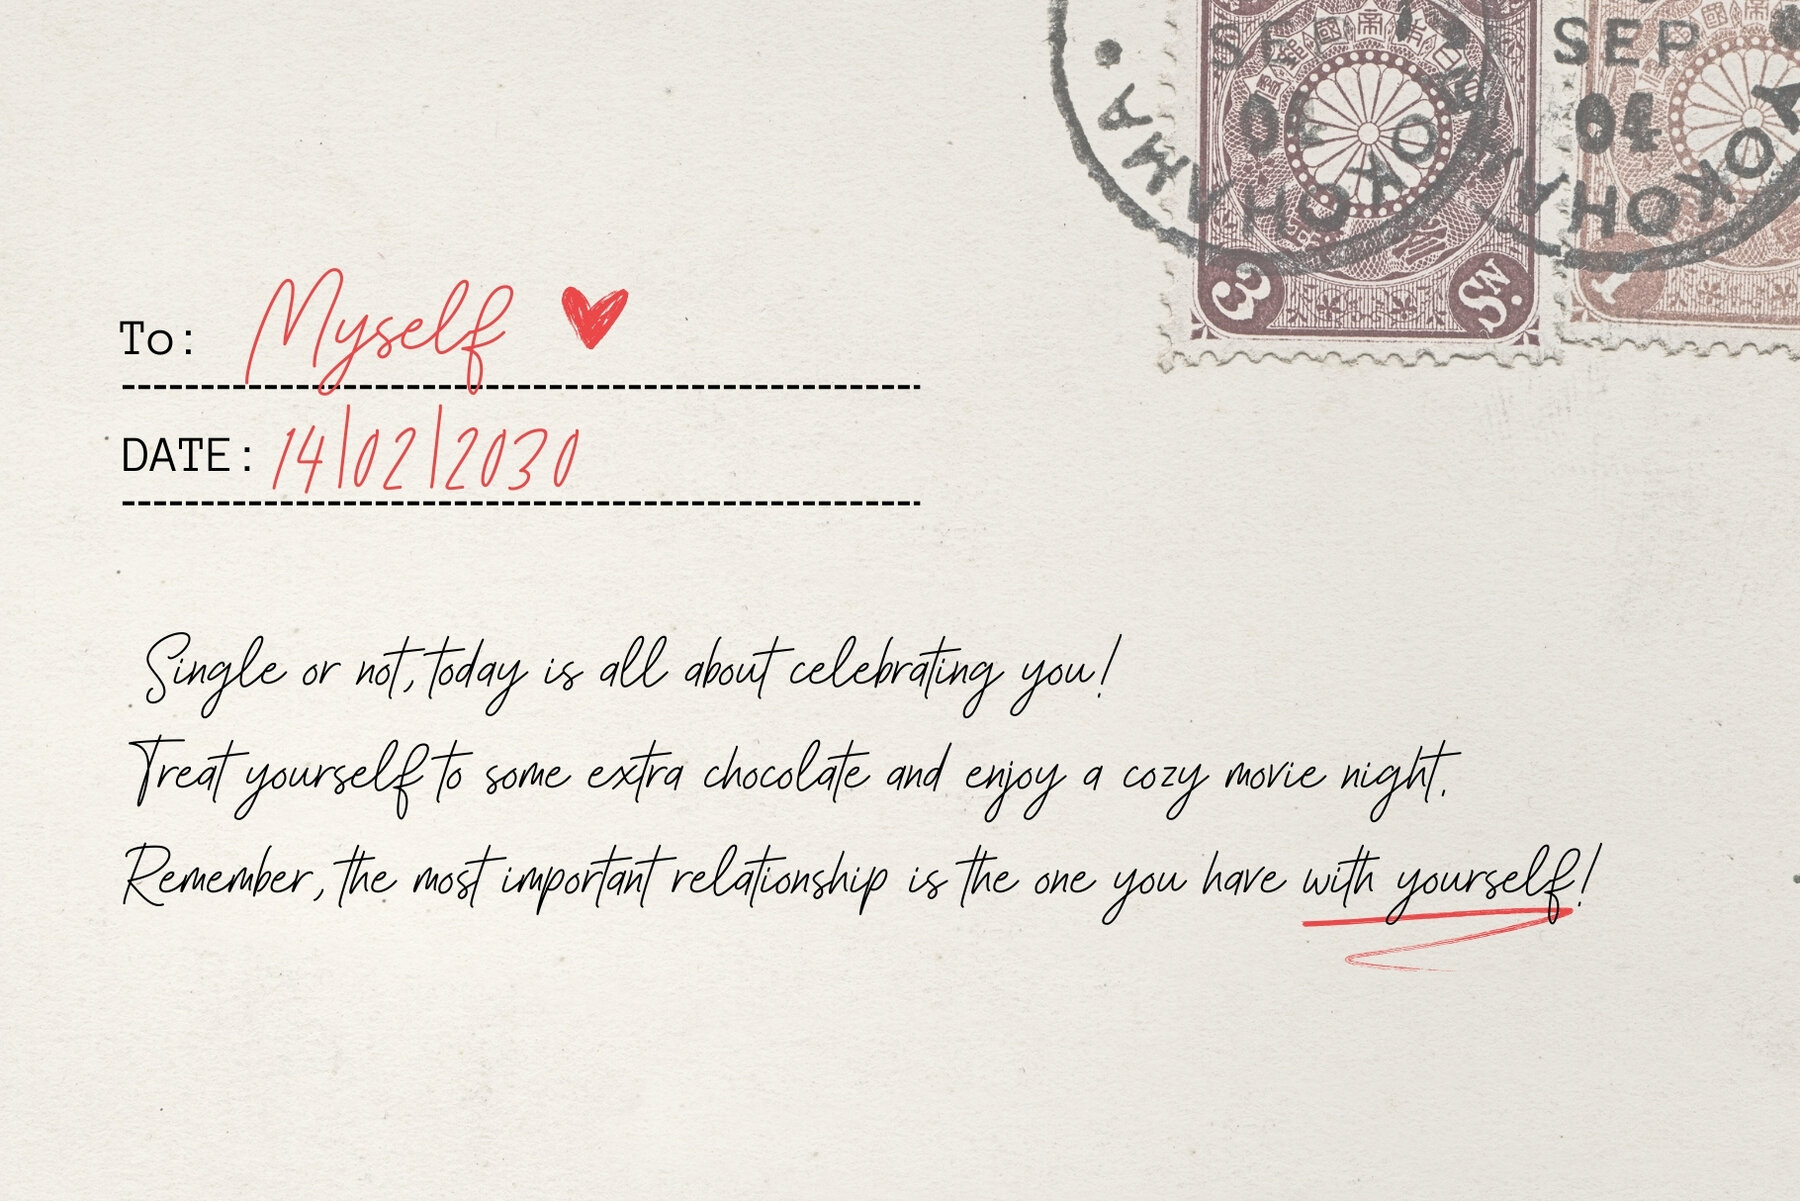 SEP
SEP
04
YOKOHAMA
YOKOHAMA
3
Sn.
1
To: Myself
DATE: 14/02/2030
Single or not, today is all about celebrating you!
Treat yourself to some extra chocolate and enjoy a cozy movie night.
Remember, the most important relationship is the one you have with yourself!